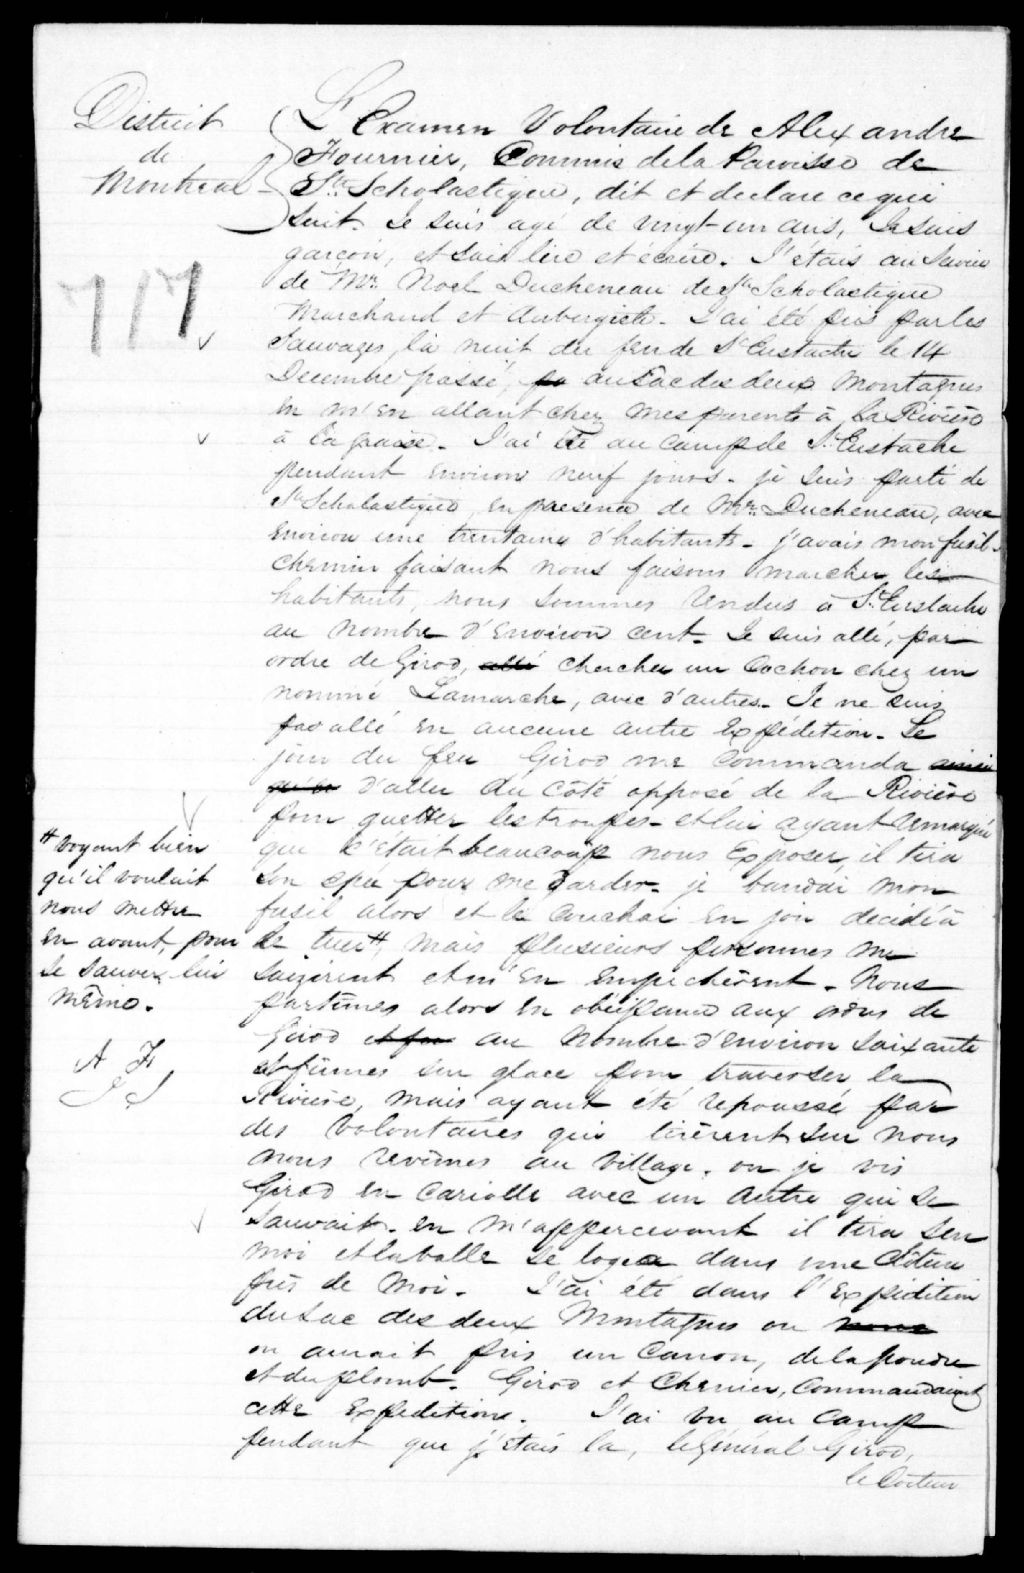 District
de
Montreal
L'Examen Volontaire de Alexandre
Fournier, Commis de la Paroisse de
Ste Scholastique, dit et declare ce qui
suit. Je suis agé de vingt-un ans, Je suis
garçon, et sais lire et écrire. J'étais au Service
de Mr. Noel Ducheneau de Ste Scholastique
Marchand et Aubergiste. J'ai été pris par les
Sauvages, la nuit du feu de St Eustache le 14
Decembre passé, au Lac des deux Montagnes
en m'en allant chez mes parents à la Rivière
à la graisse. J'ai été au camp de St. Eustache
pendant environ neuf jours. je suis parti de
Ste Scholastique, en presence de Mr. Ducheneau, avec
environ une trentaine d'habitants. j'avais mon fusil.
chemin faisant nous faisions marcher les
habitants, nous sommes rendus à St. Eustache
au nombre d'environ cent. Je suis allé, par
ordre de Girod, allé chercher un Cochon chez un
nommé Lamarche, avec d'autres. Je ne suis
pas allé en aucune autre Expédition. Le
jour du feu Girod me commanda ainsi
qu'en d'aller du côté opposé de la Rivière
pour guetter les troupes. et lui ayant remarqué
que c'était beaucoup nous Exposer, il tira
son epée pour me darder. je bandai mon
fusil alors et le couchai en joie decidé à
le tuer # mais plusieurs personnes me
saizirent et m'en empechèrent. Nous
partîmes alors en obéissance aux ordres de
Girod au nombre d'environ soixante
et fûmes sur glace pour traverser la
Rivière, mais ayant été repoussé par
des Volontaires qui tirèrent sur nous
nous revîmes au Village. ou je vis
Girod en cariolle avec un autre qui se
sauvait. en m'appercevant il tira sur
moi et la balle se logea dans une Clôture
près de moi. J'ai été dans l'Expédition
du Lac des deux Montagnes ou nous
on aurait pris un Canon, de la poudre
et du plomb. Girod et Chenier, Commandaient
cette Expedition. J'ai vu au Camp
pendant que j'étais la, le Général Girod,
le Docteur
717
# voyant bien
qu'il voulait
nous mettre
en avant, pour
se sauver lui
même.
A F